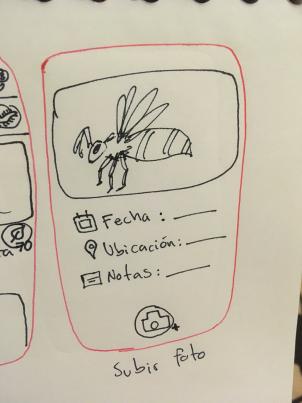 Fecha: ___
Ubicación: ___
Notas: ___
Subir foto